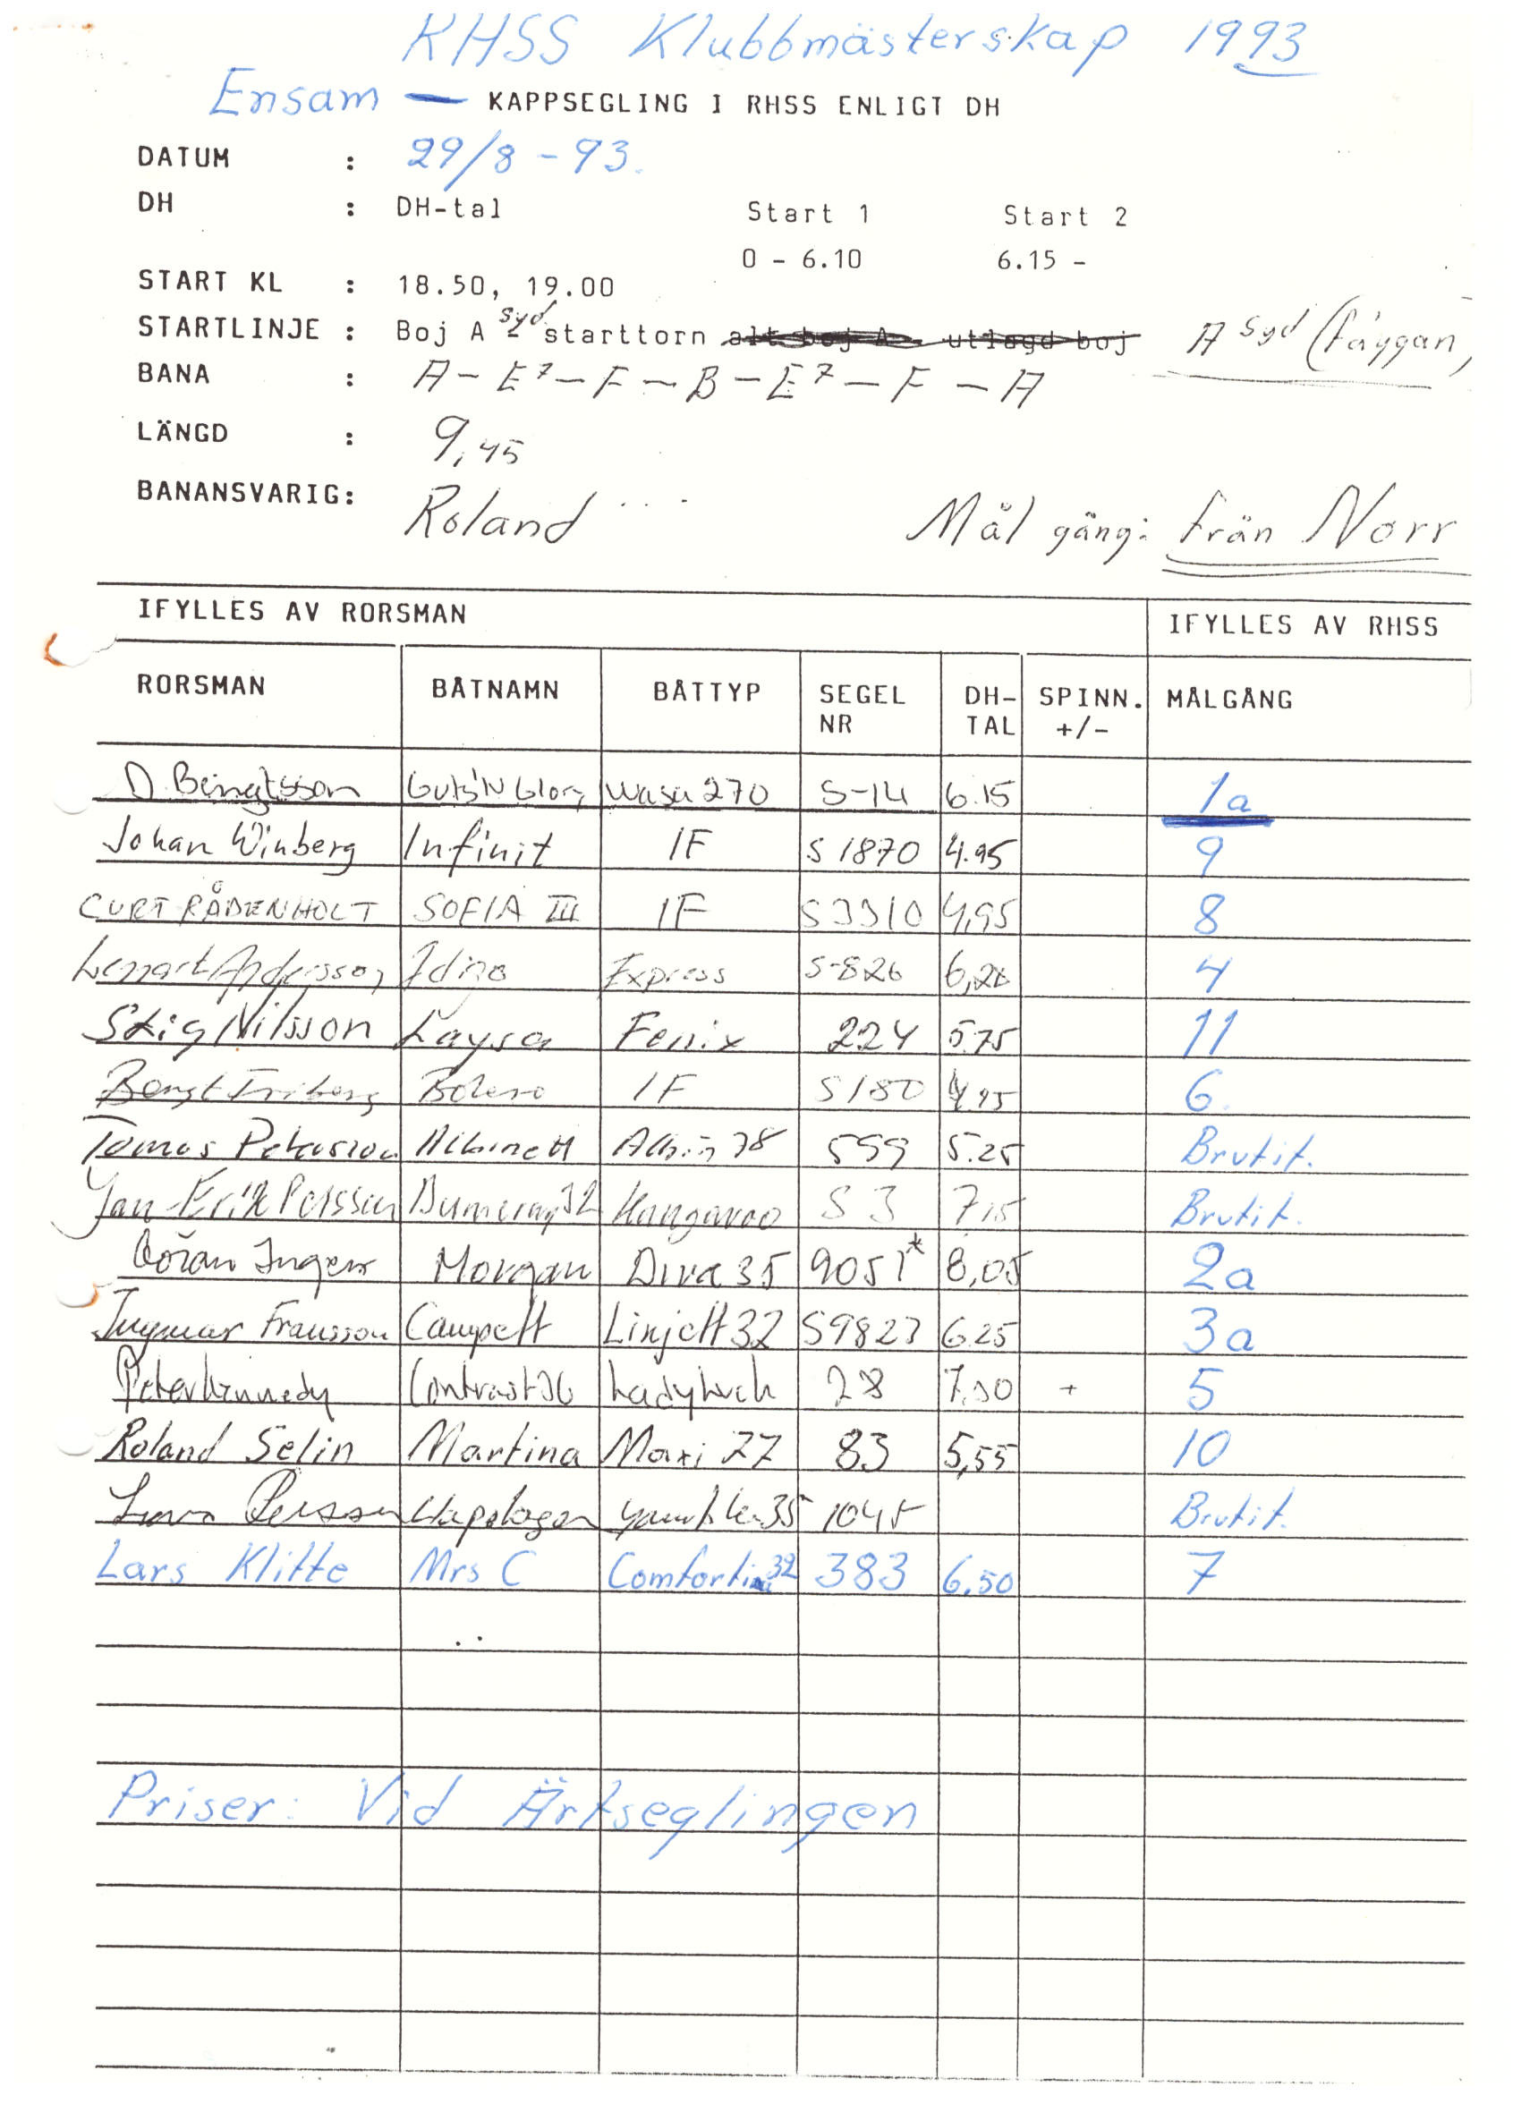 RHSS Klubbmästerskap 1993
Ensam — KAPPSEGLING I RHSS ENLIGT DH
DATUM : 29/8 - 93.
DH : DH-tal Start 1 Start 2
0 - 6.10 6.15 -
START KL : 18.50, 19.00
STARTLINJE : Boj A syd starttorn alt boj A utlagd boj A syd (Fäggan)
BANA : A - E7 - F - B - E7 - F - A
LÄNGD : 9,45
BANANSVARIG: Roland Mål gång: från Norr
IFYLLES AV RORSMAN IFYLLES AV RHSS
RORSMAN BÅTNAMN BÅTTYP SEGEL NR DH-TAL SPINN. +/- MÅLGÅNG
D. Bengtsson Guts'N Glory Wasa 270 S-14 6.15 1a
Johan Winberg Infinit IF S 1870 4.95 9
CURT RÅDENHOLT SOFIA III IF S3310 4,95 8
Lennart Andersson Express S-826 4
Stig Nilsson Laysa Fenix 224 5.75 11
Bengt Friberg Bolero IF S180 4,95 6.
Tomas Petersson Albinett Albin 78 599 5.25 Brutit.
Jan Erik Persson Kangaroo S 3 7,15 Brutit.
Göran Morgan Diva 35 9051* 8,05 2a
Ingmar Fransson Campett Linjett 32 S9823 6.25 3a
Peter Kennedy Contrast 36 Ladyhwk 28 7,30 + 5
Roland Selin Martina Maxi 77 83 5,55 10
Persson 35 1045 Brutit.
Lars Klitte Mrs C Comfortina 32 383 6.50 7
Priser: Vid Ärtseglingen